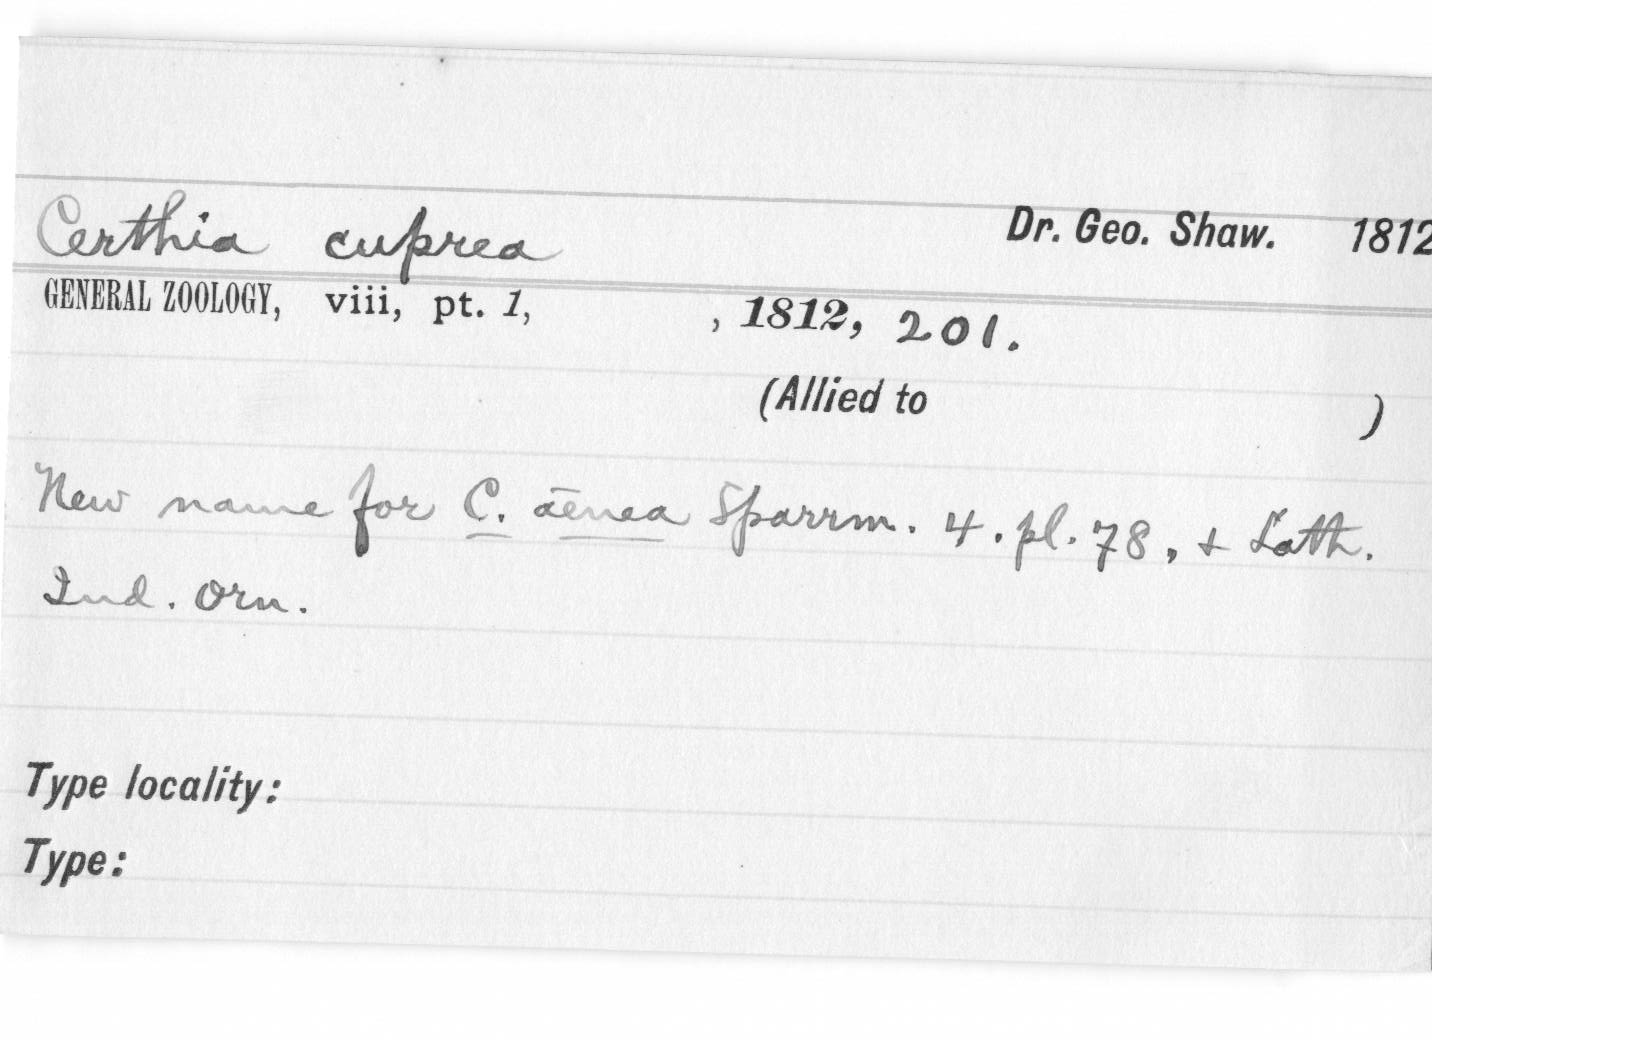 Certhia cuprea Dr. Geo. Shaw. 1812
GENERAL ZOOLOGY, viii, pt. 1, , 1812, 201.
(Allied to )
New name for C. aēnea Sparrm. 4. pl. 78, + Lath.
Ind. Orn.
Type locality:
Type: